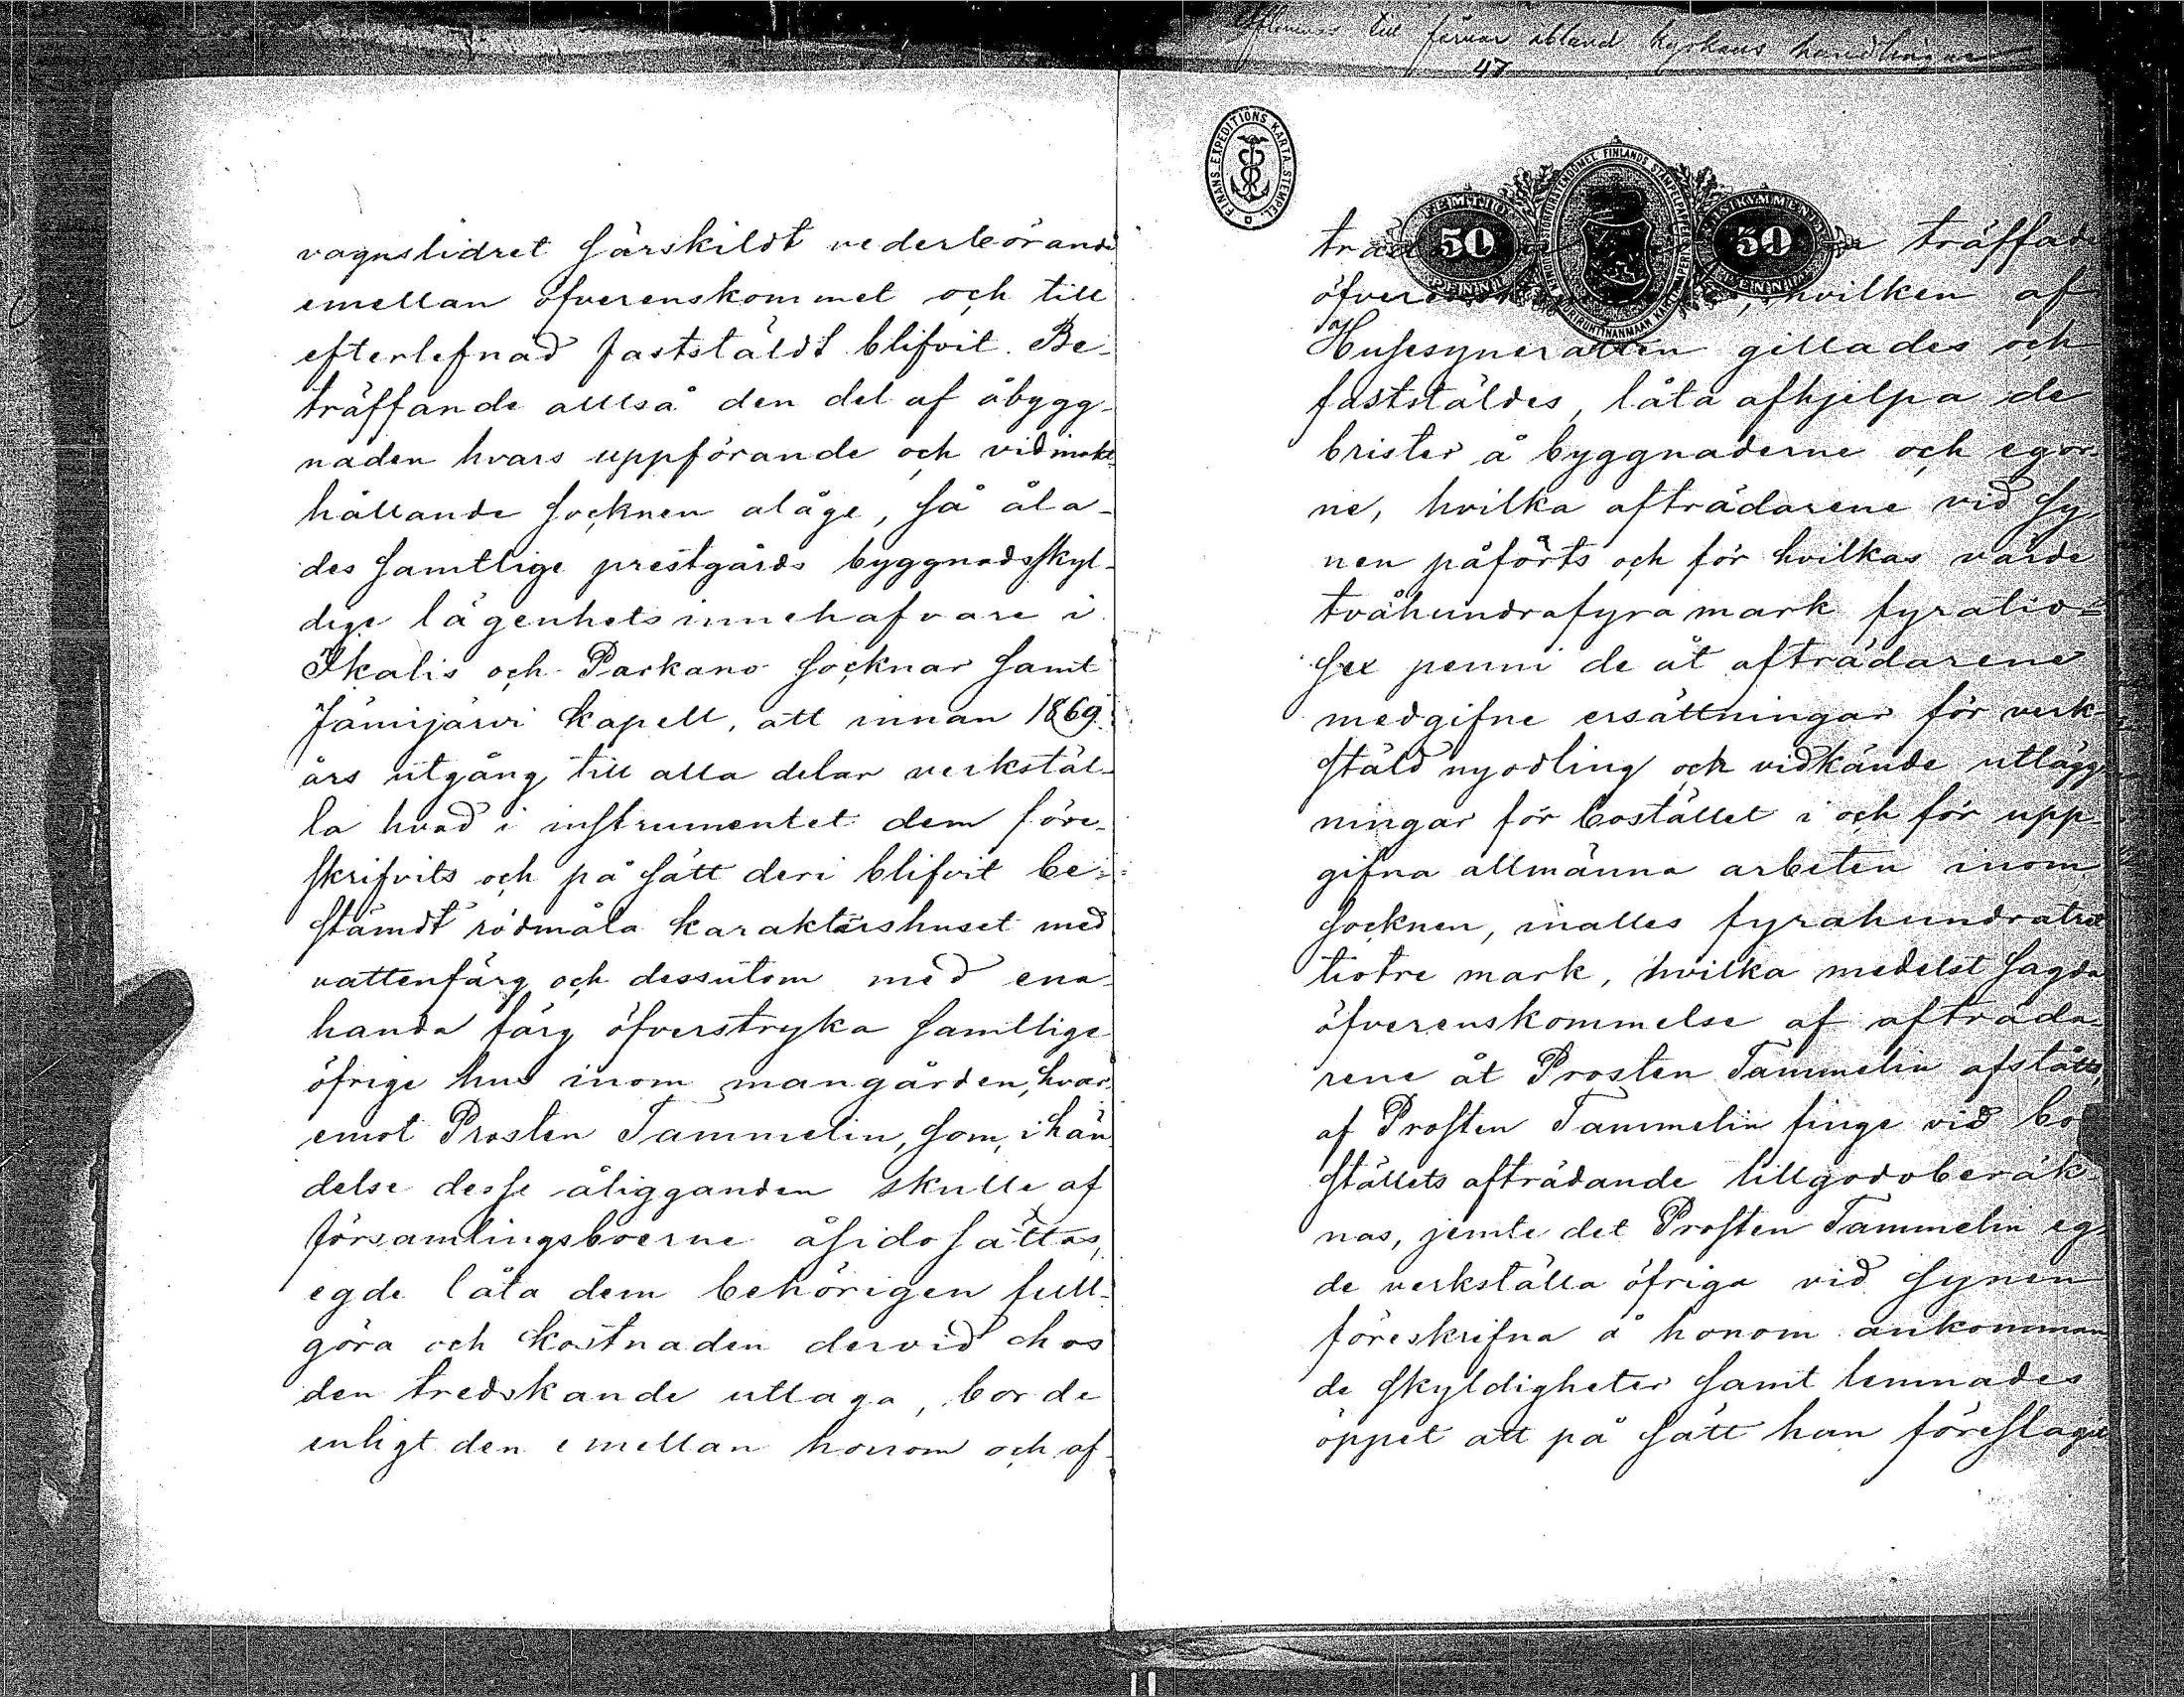 vagnslidret särskildt vederbörande
emellan öfverenskommet och till
efterlefnad faststäldt blifvit. Be-
träffande alltså den del af åbygg-
naden hvars uppförande och vidmakt-
hållande Socknen ålåge, så åla-
des samtlige prestgårds byggnadsskyl-
dige lägenhetsinnehafvare i
Ikalis och Parkano Socknar samt
Jämijärvi Kapell, att innan 1869
års utgång till alla delar verkstäl-
la hvad i instrumentet dem före-
skrifvits och på sätt deri blifvit be-
stämdt rödmåla karaktärshuset med
vattenfärg och dessutom med ena-
handa färg öfverstryka samtlige
öfrige hus inom mangården, hvar-
emot Prosten Tammelin, som, i hän-
delse desse åligganden skulle af
församlingsboerne åsidosättas,
egde låta dem behörigen full-
göra och kostnaden dervid hos
den tredskande uttaga, borde
enligt den emellan honom och af-
till förvar ibland kyrkans handlingar
47
FINANS EXPEDITIONS KARTA. STEMPEL.
50 50
FINLANDS
träffade
hvilken af
Husesynerätten gillades och
faststäldes, låta afhjelpa de
brister å byggnaderne och egor-
ne, hvilka afträdarene vid Sy-
nen påförts och för hvilkas värde
tvåhundrafyra mark fyratio-
sex penni de åt afträdarene
medgifne ersättningar för verk-
stäld nyodling och vidkände utlägg-
ningar för bostället i och för upp-
gifna allmänna arbeten inom
Socknen, inalles fyrahundratre-
tiotre mark, hvilka medelst sagda
öfverenskommelse af afträda-
rene åt Prosten Tammelin afståtts,
af Prosten Tammelin finge vid bo-
ställets afträdande tillgodoberäk-
nas, jemte det Prosten Tammelin eg-
de verkställa öfriga vid Synen
föreskrifna å honom ankomman-
de skyldigheter samt lemnades
öppet att på sätt han föreslagit